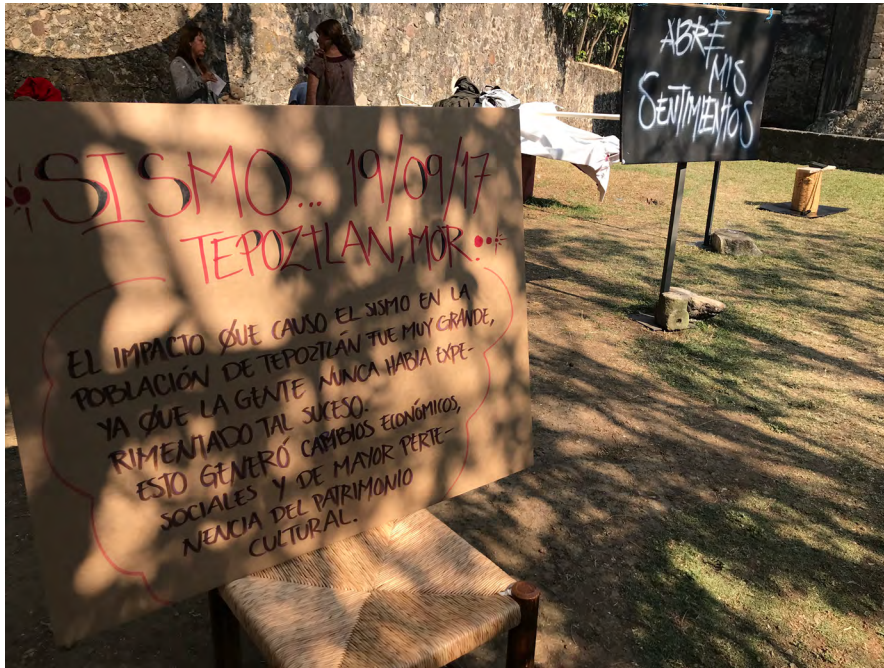 SISMO... 19/09/17
TEPOZTLAN, MOR.
EL IMPACTO QUE CAUSO EL SISMO EN LA
POBLACIÓN DE TEPOZTLÁN FUE MUY GRANDE,
YA QUE LA GENTE NUNCA HABIA EXPE-
RIMENTADO TAL SUCESO.
ESTO GENERÓ CAMBIOS ECONÓMICOS,
SOCIALES Y DE MAYOR PERTE-
NENCIA DEL PATRIMONIO
CULTURAL.
ABRE
MIS
SENTIMIENTOS